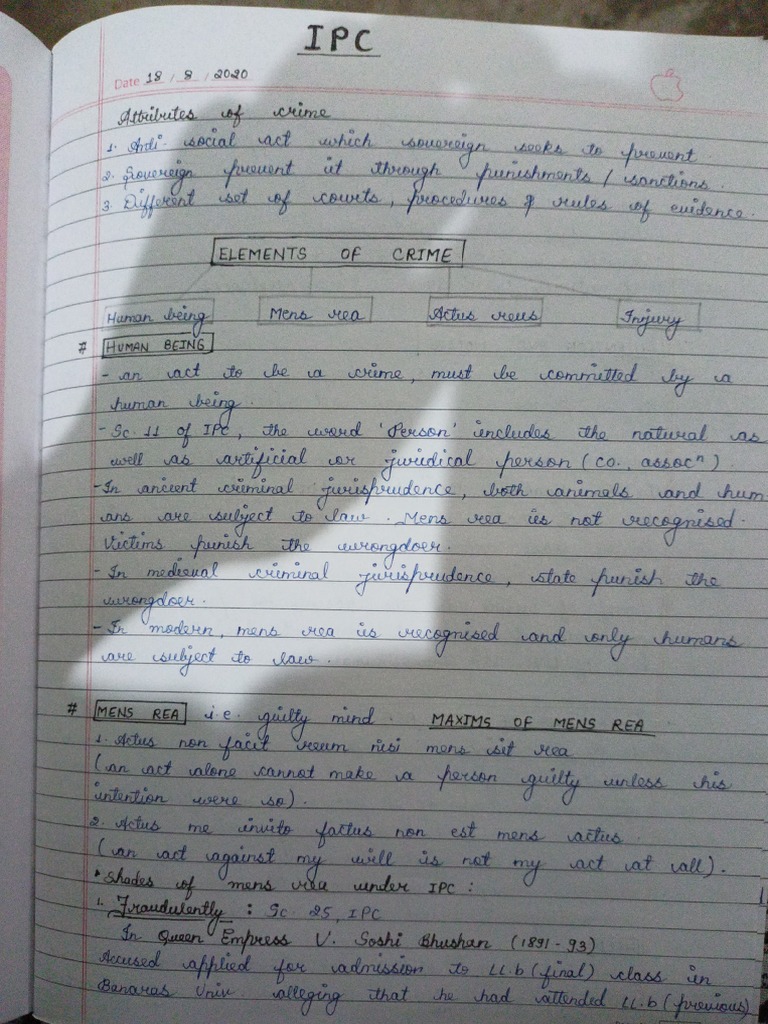 IPC
Date 18 / 8 / 2020
Attributes of crime
1. Anti-social act which sovereign seeks to prevent.
2. Sovereign prevent it through punishments / sanctions.
3. Different set of courts, procedures & rules of evidence.
ELEMENTS OF CRIME
Human being Mens rea Actus reus Injury
# HUMAN BEING
- an act to be a crime, must be committed by a
human being.
- Sc. 11 of IPC, the word 'Person' includes the natural as
well as artificial or juridical person (co., assocn).
- In ancient criminal jurisprudence, both animals and hum
ans are subject to law. Mens rea is not recognised.
Victims punish the wrongdoer.
- In medieval criminal jurisprudence, state punish the
wrongdoer.
- In modern, mens rea is recognised and only humans
are subject to law.
# MENS REA i.e. guilty mind. MAXIMS OF MENS REA
1. Actus non facit reum nisi mens sit rea
(an act alone cannot make a person guilty unless his
intention were so).
2. Actus me invito fattus non est mens actus.
(an act against my will is not my act at all).
* Shades of mens rea under IPC :
1. Fraudulently : Sc. 25, IPC
In Queen Empress V. Soshi Bhushan (1891-93)
Accused applied for admission to LL.b (final) class in
Banaras Univ. alleging that he had attended LL.b (previous)